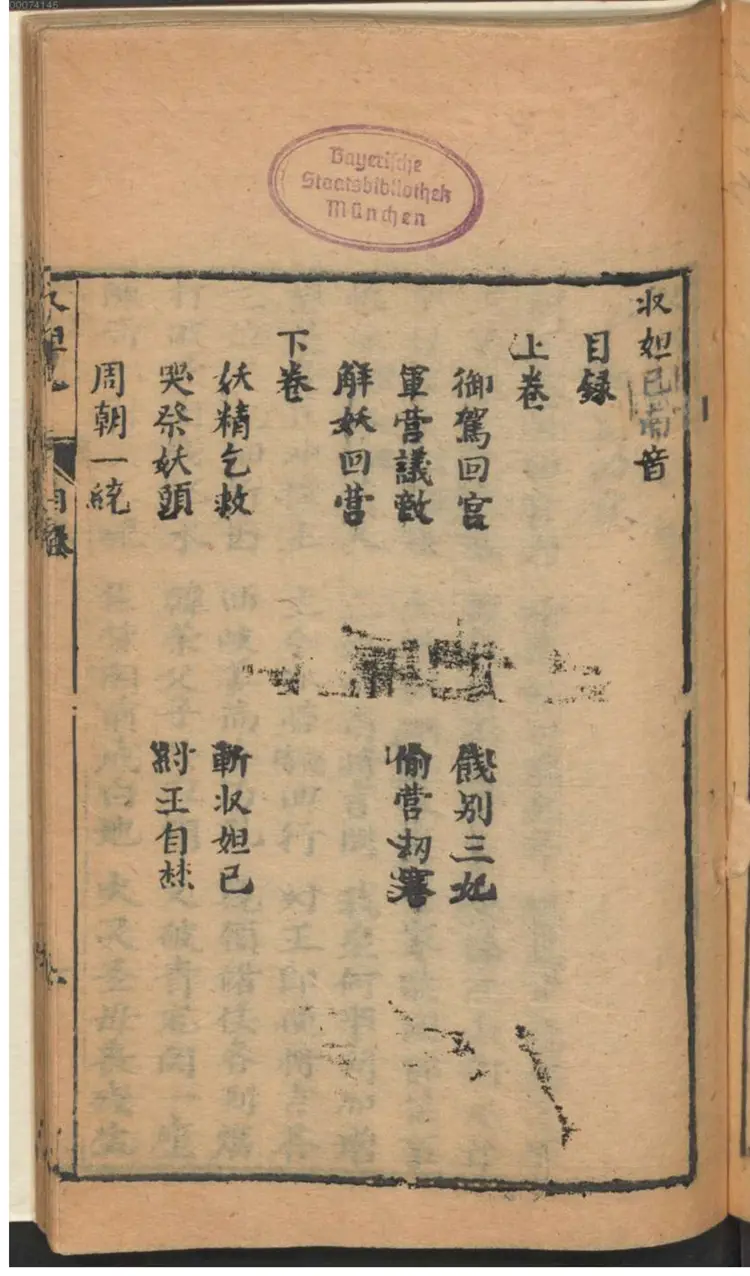 00074145
Bayerische
Staatsbibliothek
München
収妲己南音
目録
上卷
御駕回宮 餞別三妃
軍营議敵 偷营刼寨
解妖回营
下卷
妖精乞救 斬収妲己
哭祭妖頭 紂王自焚
周朝一統
目録